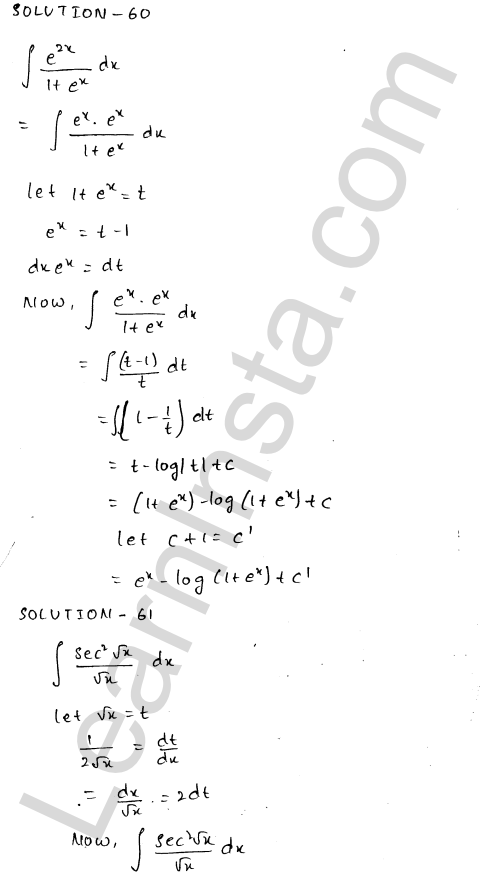 SOLUTION-60
∫ e^{2x}/(1+e^x) dx
= ∫ (e^x · e^x)/(1+e^x) dx
let 1+e^x = t
e^x = t-1
dx e^x = dt
Now, ∫ (e^x · e^x)/(1+e^x) dx
= ∫ (t-1)/t dt
= ∫(1 - 1/t) dt
= t - log|t| + c
= (1+e^x) - log(1+e^x) + c
let c+1 = c'
= e^x - log(1+e^x) + c'
SOLUTION-61
∫ sec²√x/√x dx
let √x = t
1/(2√x) = dt/dx
= dx/√x = 2dt
Now, ∫ sec²√x/√x dx
LearnInsta.com